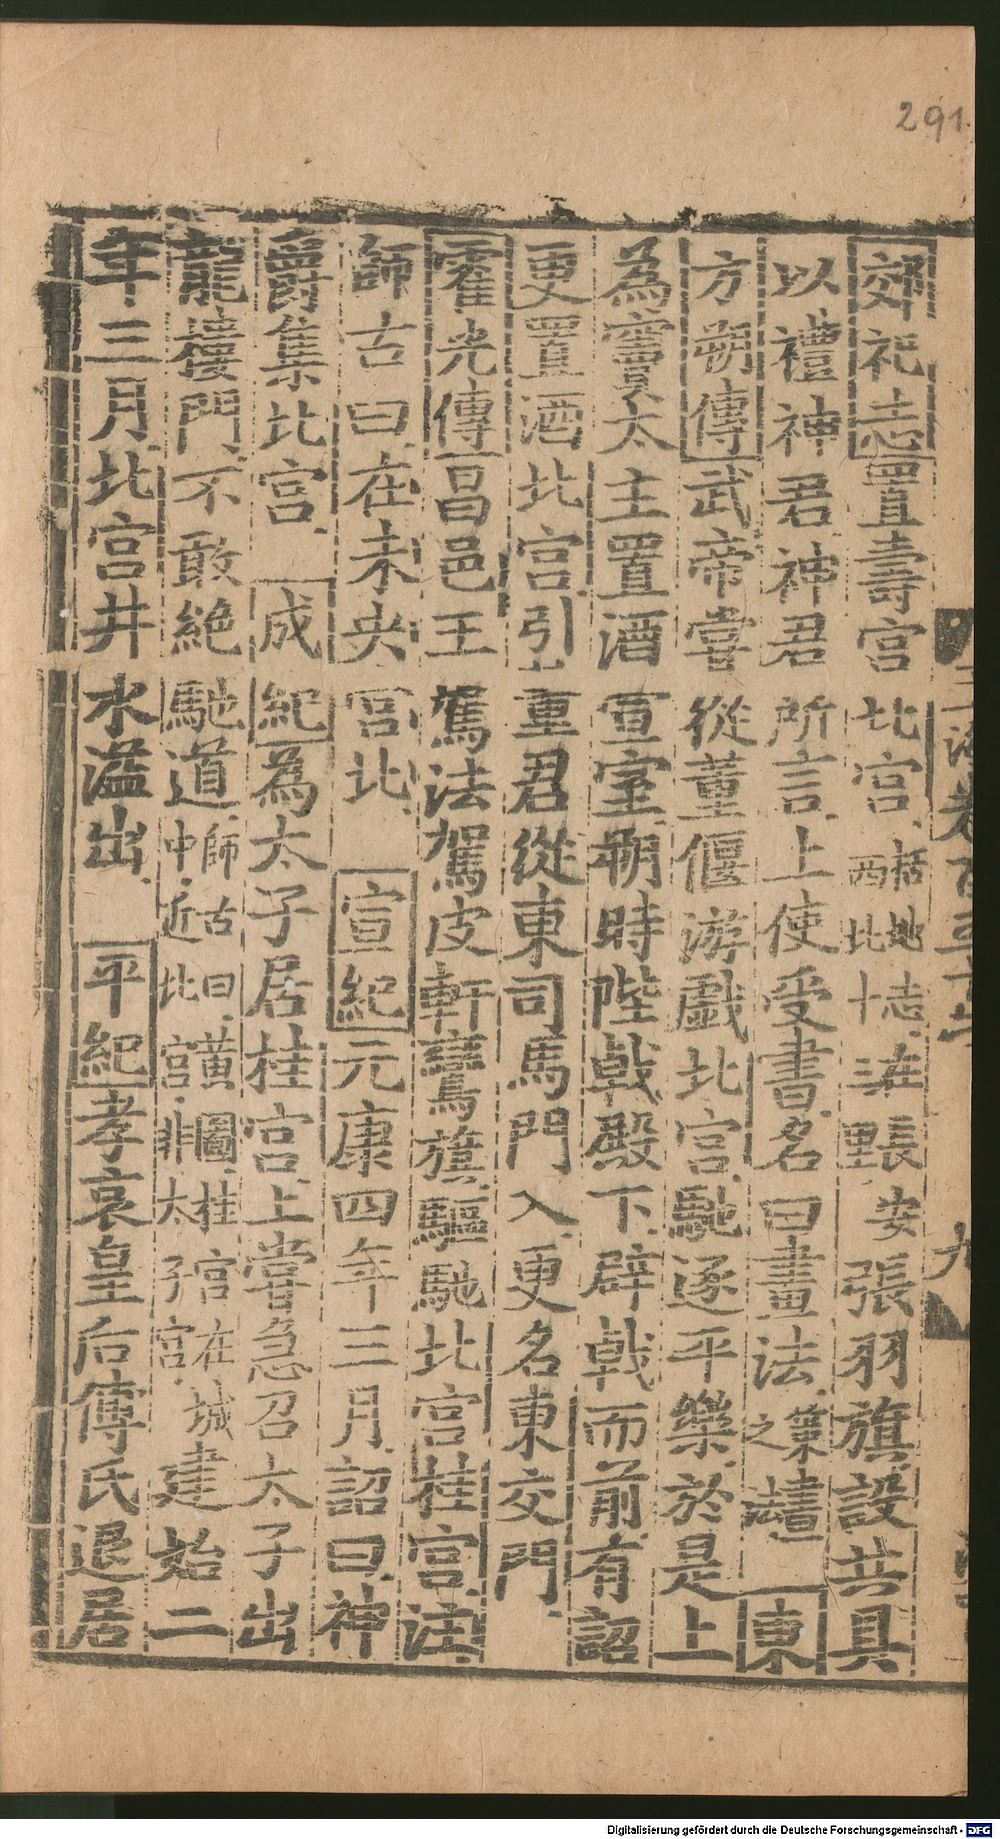 291.
郊祀志置壽宮北宮括地志在長安西北十三里張羽旗設共具
以禮神君神君所言上使受書名曰畫法策畫之法東
方朔傳武帝嘗從董偃游戲北宮馳逐平樂於是上
為竇太主置酒宣室朔時陛戟殿下辟戟而前有詔
更置酒北宮引董君從東司馬門入更名東交門
霍光傳昌邑王駕法駕皮軒鸞旗驅馳北宮桂宮注
師古曰在未央宮北宣紀元康四年三月詔曰神
爵集北宮成紀為太子居桂宮上嘗急召太子出
龍樓門不敢絕馳道師古曰黃圖桂宮在城中近北宮非太子宮建始二
年三月北宮井水溢出平紀孝哀皇后傅氏退居
九
Digitalisierung gefördert durch die Deutsche Forschungsgemeinschaft - DFG